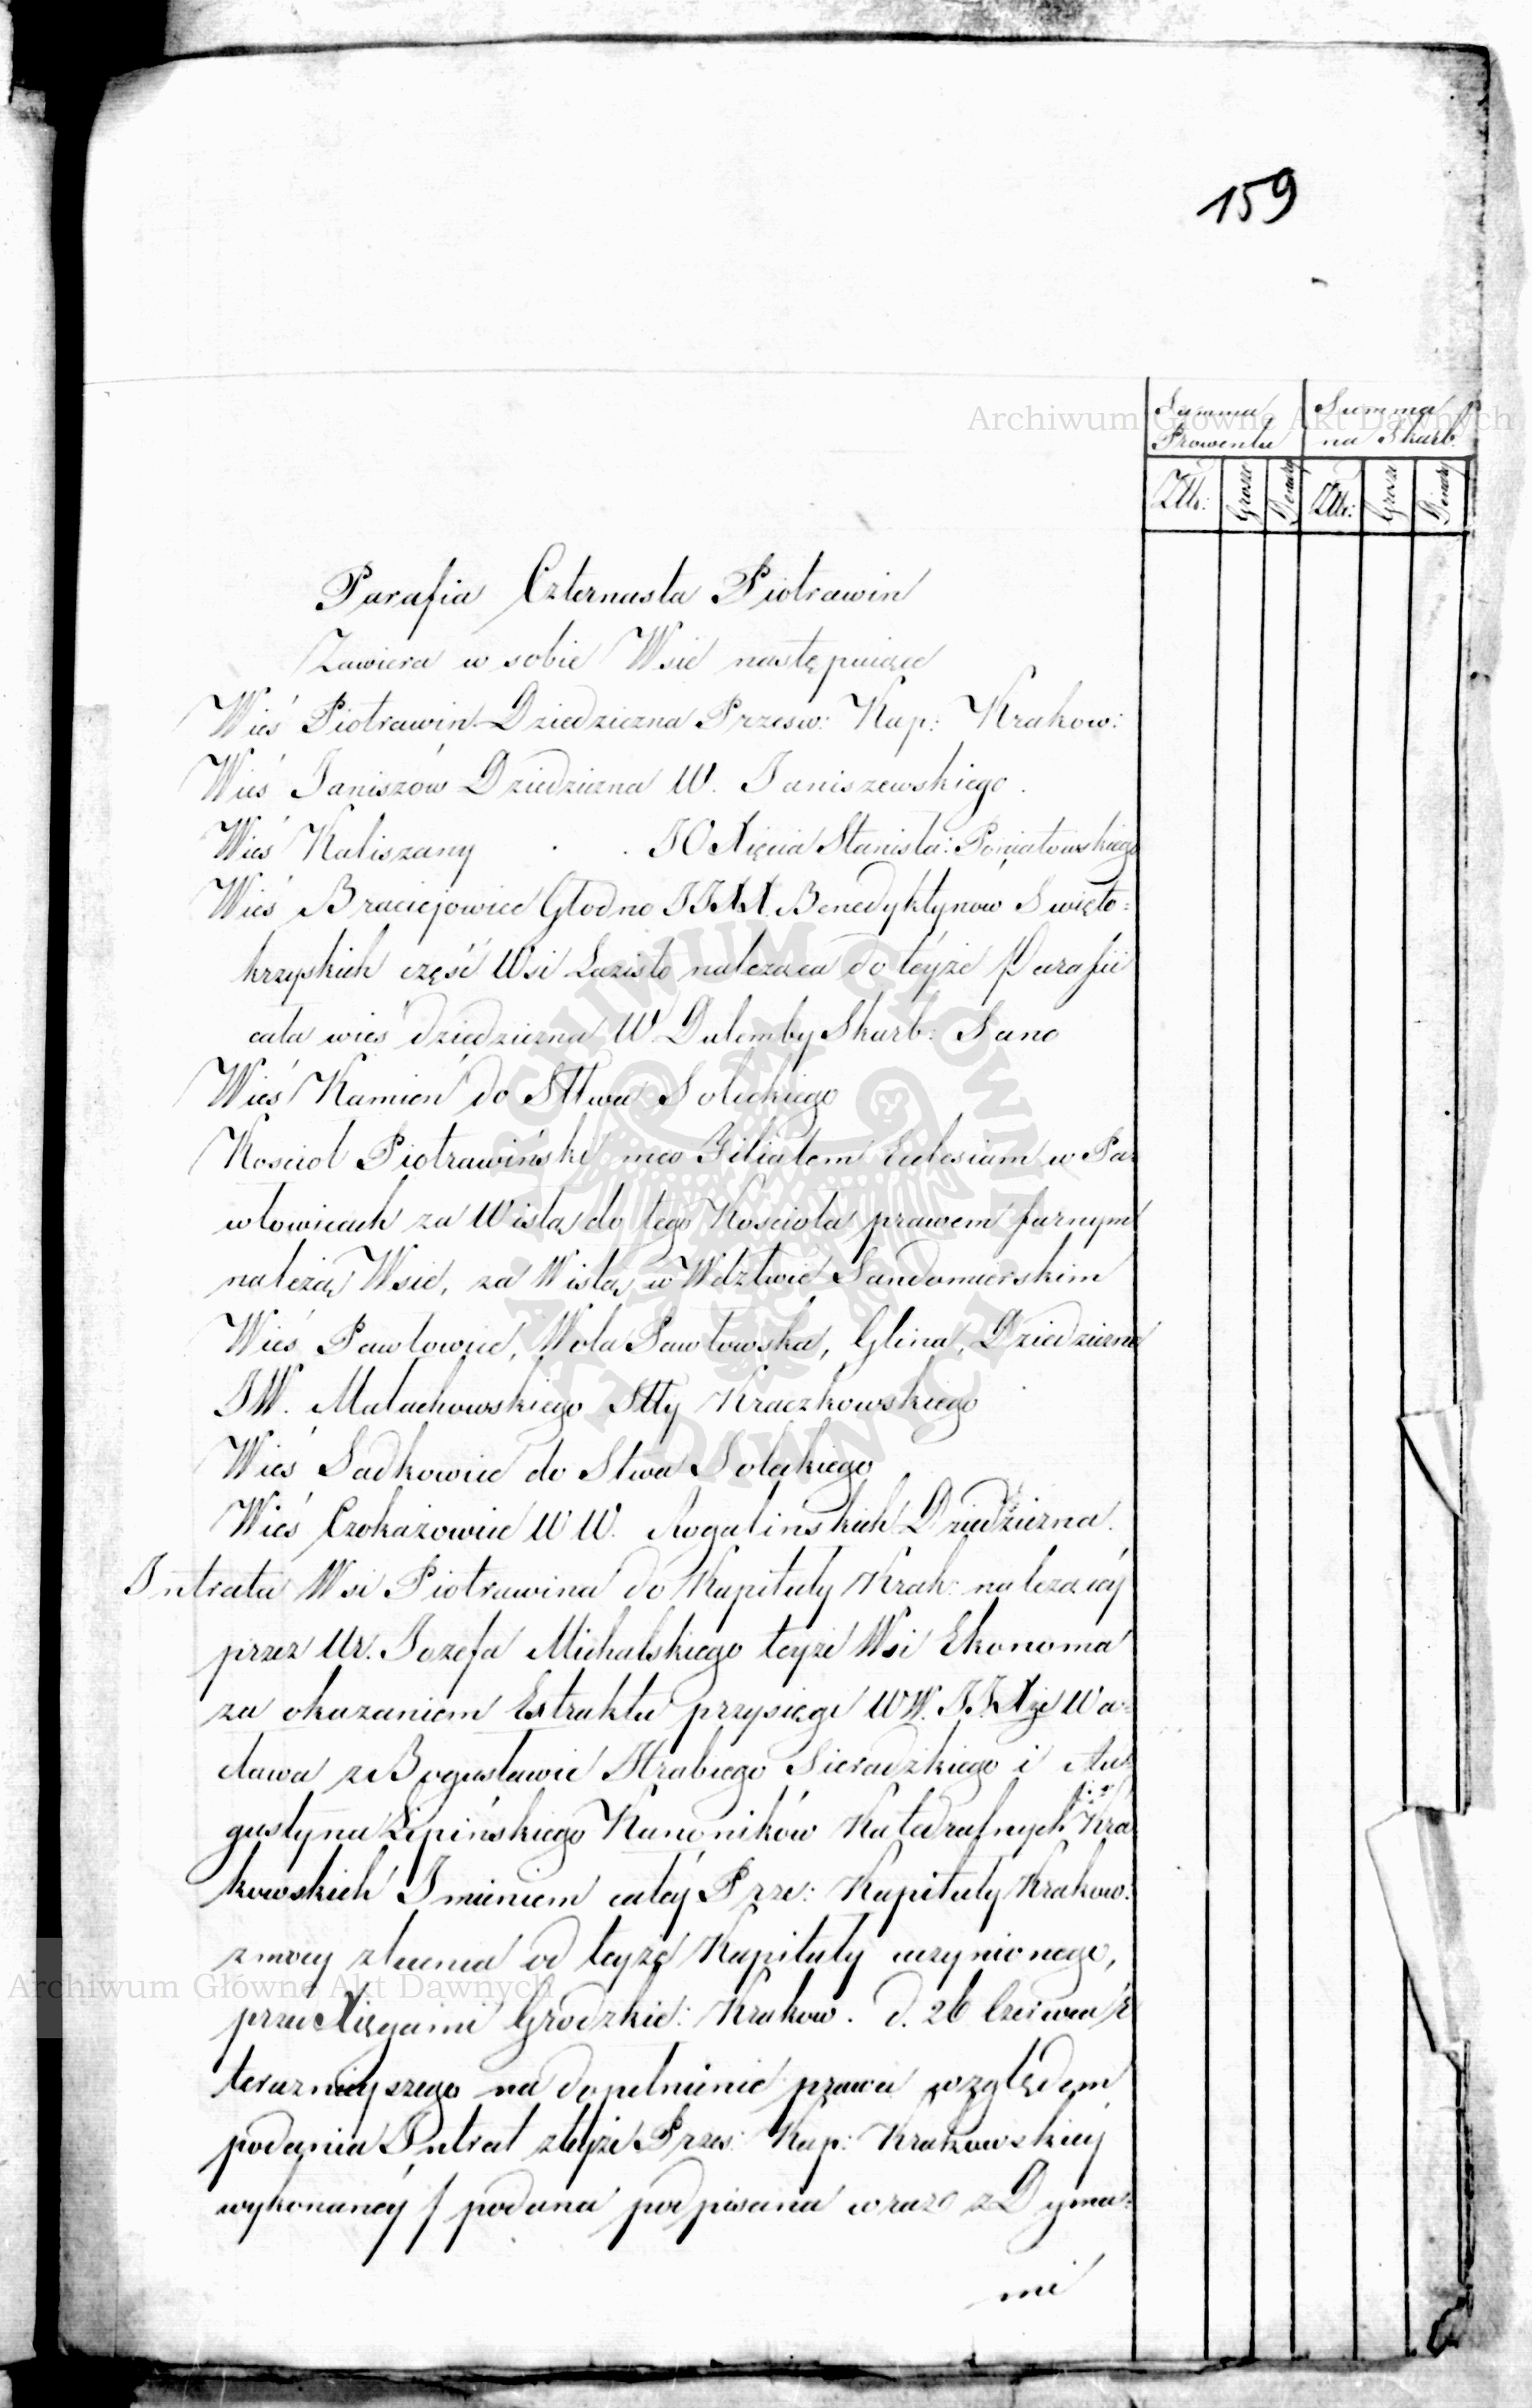 159
Summa Prowentu
Summa na Skarb
Złł: Grosze Denary Złł: Grosze Denary
Parafia Czternasta Piotrawin
Zawiera w sobie Wsie następuiące
Wieś Piotrawin Dziedziczna Przesw: Kap: Krakow:
Wieś Janiszów Dziedziczna W. Janiszewskiego.
Wieś Kaliszany . . JO Xięcia Stanisła: Poniatowskiego
Wieś Braciejowice Głodno JJXX. Benedyktynów Swięto=
krzyskich część Wsi Łazisto należąca do teyże Parafii
cała wieś dziedziczna W Dulemby Skarb: Sano
Wieś Kamień do Sttwa Soleckiego
Kościoł Piotrawiński mea Filialem Eclesiam w Pa
włowicach za Wisłą do tego Kościoła prawem farnym
należą Wsie, za Wisłą w Wdztwie Sandomierskim
Wieś Pawłowice, Wola Pawłowska, Glina, Dziedziczna
JW. Małachowskiego Stty
Wieś Sadkowice do Stwa Soleckiego
Wieś Czekażowice W W. Rogalinskich Dziedziczna.
Intrata Wsi Piotrawina do Kapituły Krak: należącey
przez Ur. Jozefa Michalskiego teyże Wsi Ekonoma
za okazaniem Extraktu przysięgi WW. JJXży Wa=
cława z Bogusławic Hrabiego Sieradzkiego i Au=
gustyna Lipińskiego Kanoników Katedralnych Kra
kowskich Imieniem całéy Prze: Kapituły Krakow:
z mocy zlecenia od teyże Kapituły uczynionego,
przed Xięgami Grodzkie: Krakow. d. 26 Czerwca r
teraznieyszego na dopełnienie prawa względem
podania Intrat z teyże Przes: Kap: Krakowskiey
wykonaney / podana podpisana wraz z Dyma=
mi
Archiwum Główne Akt Dawnych
Archiwum Główne Akt Dawnych
ARCHIWUM GŁÓWNE AKT DAWNYCH